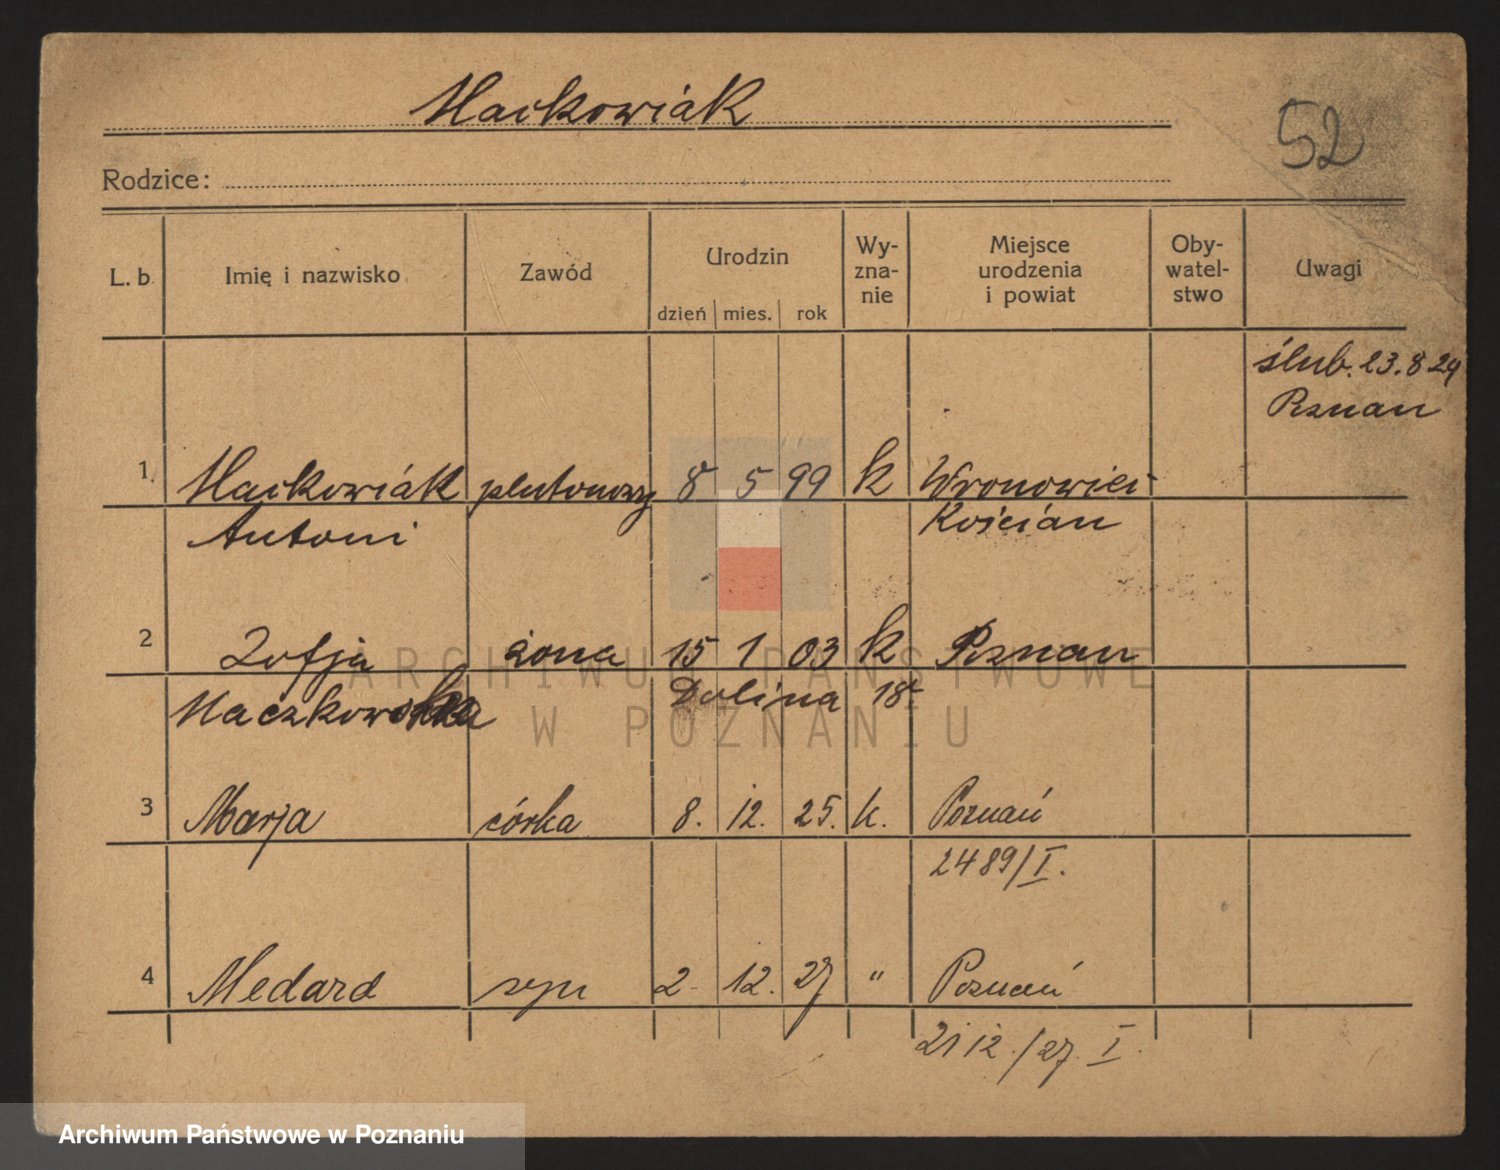 Maćkowiak
52
Rodzice:
L. b. Imię i nazwisko Zawód Urodzin dzień mies. rok Wy-zna-nie Miejsce urodzenia i powiat Oby-watel-stwo Uwagi
ślub. 23.8 24
Poznan
1 Maćkowiák plutonowy 8 5 99 k
Antoni Kościan
2 Zofja żona 15 1 03 k Poznan
Maczkowska Dolina 18.
3 Marja córka 8. 12. 25. k. Poznań
2489/I.
4 Medard syn 2. 12. 27 " Poznań
2112./27. I.
ARCHIWUM PAŃSTWOWE
W POZNANIU
Archiwum Państwowe w Poznaniu